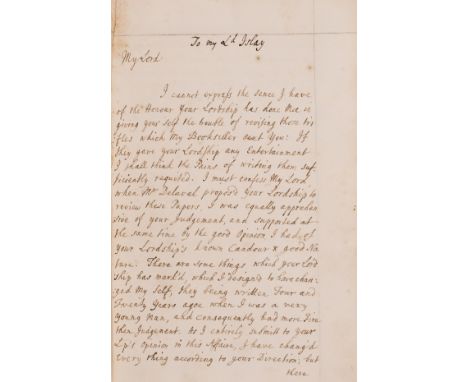 To my Ld Islay
My Lord
I cannot express the sence I have
of the Honour Your Lordship has done Me in
giving your self the trouble of revising those tri
fles which My Bookseller sent You: If
they gave your Lordship any Entertainment
I shall think the Pains of writing them suf
ficiently requited. I must confess My Lord
when Mr Delaval propos'd Your Lordship to
review these Papers, I was equally apprehen
sive of your Judgement, and supported at
the same time by the good Opinion I had of
Your Lordship's known Candour & good Na
ture: There are some things which your Lord
ship has mark'd, which I designed to have chan
ged My Self, they being written Four and
Twenty Years agoe when I was a very
Young Man, and consequently had more Fire
then Judgement. As I entirely submit to Your
Lp's Opinion in this Affaire, I have chang'd
Every thing according to your Direction; but
there